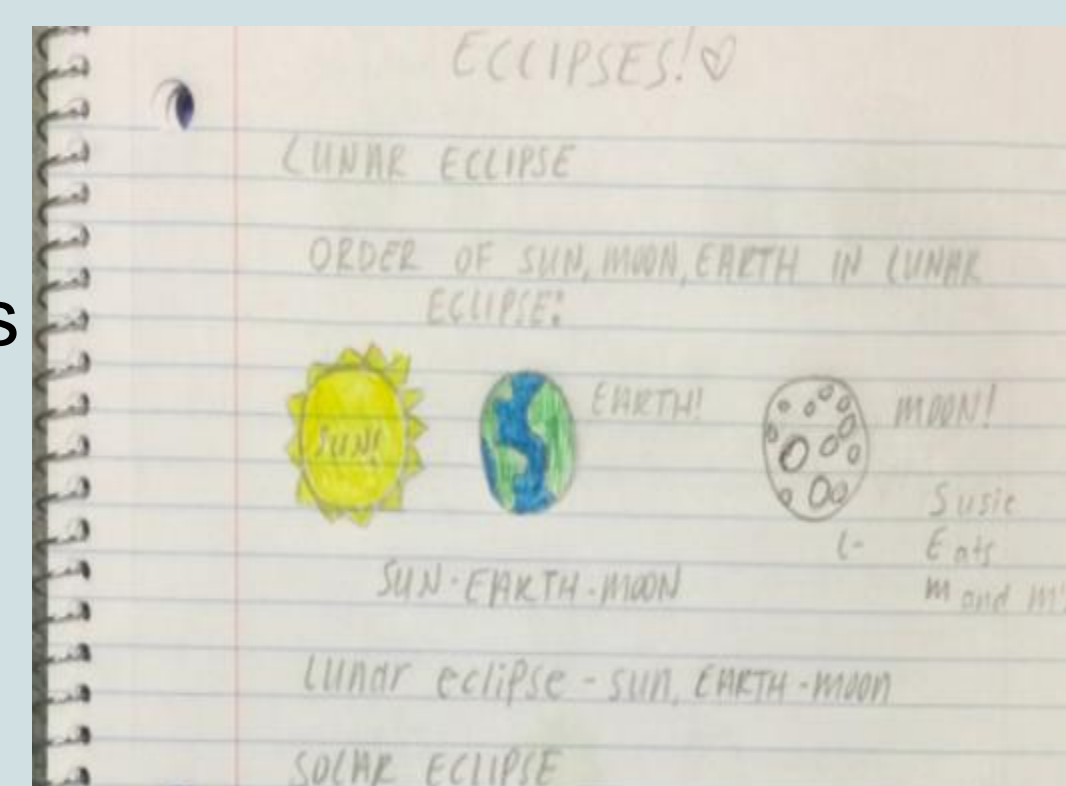 ECLIPSES!♡
LUNAR ECLIPSE
ORDER OF SUN, MOON, EARTH IN LUNAR
ECLIPSE:
SUN!
EARTH!
MOON!
Susie
L- Eats
M and M's
SUN-EARTH-MOON
Lunar eclipse - sun, EARTH-moon
SOLAR ECLIPSE
s